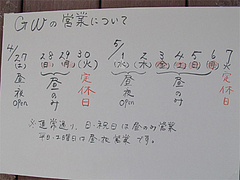 GWの営業について
4/27 28 29 30 5/1 2 3 4 5 6 7
(土) (日) (月) (火) (水) (木) (金) (土) (日) (月) 火
昼 夜 open 昼のみ 定休日 昼 夜 open 昼のみ 定休日
※通常通り、日・祝日は昼のみ営業
平日・土曜日は昼・夜 営業 です。